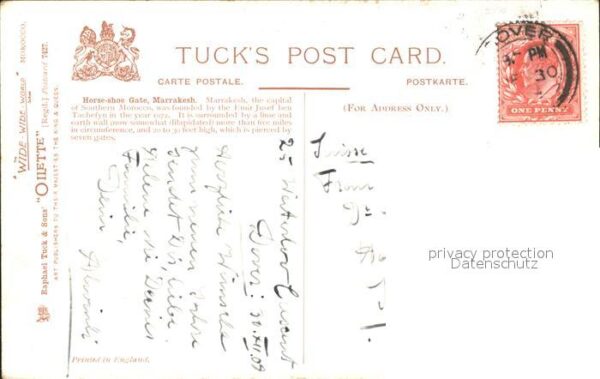 TUCK'S POST CARD.
CARTE POSTALE.
POSTKARTE.
(FOR ADDRESS ONLY.)
Horse-shoe Gate, Marrakesh. Marrakesh, the capital
of Southern Morocco, was founded by the Emir Jusef ben
Tachefyn in the year 1072. It is surrounded by a lime and
earth wall more somewhat dilapidated) more than five miles
in circumference, and 20 to 30 feet high, which is pierced by
seven gates.
"WIDE WIDE WORLD" MOROCCO.
Raphael Tuck & Sons' "OILETTE" [Regd.] Postcard 7427.
ART PUBLISHERS TO THEIR MAJESTIES THE KING & QUEEN.
25 Waterloo Crescent
Dover. 30.XII.09
Herzliche Wünsche
zum neuen Jahre
sendet Dir, liebe
Helene und Deiner
Familie,
Deine
Suisse
Frau
DOVER
PM
30
ONE PENNY
Printed in England.
privacy protection
Datenschutz